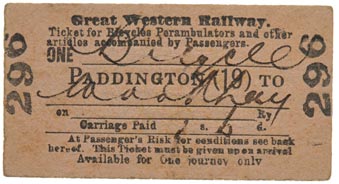 Great Western Railway.
Ticket for Bicycles Perambulators and other
articles accompanied by Passengers.
ONE Bicycle
PADDINGTON (19) TO
on Ry
Carriage Paid s. d.
At Passenger's Risk for conditions see back
hereof. This Ticket must be given up on arrival
Available for One journey only
296
296